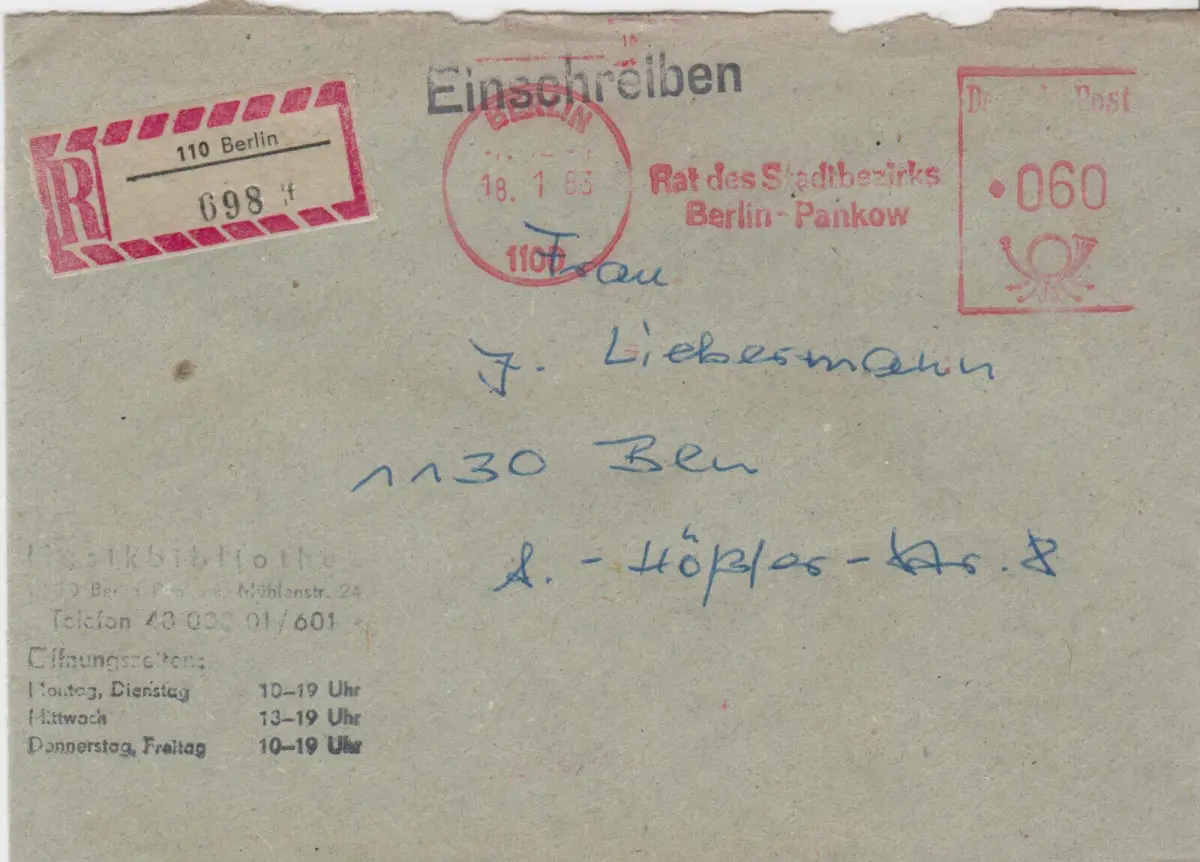 Einschreiben
R
110 Berlin
698 f
BERLIN
18. 1 83
1100
Rat des Stadtbezirks
Berlin-Pankow
Post
060
Frau
J. Liebermann
1130 Bln
A.-Hößler-Str. 8
Mühlenstr. 24
Telefon 48 01/601
Öffnungszeiten:
Montag, Dienstag 10–19 Uhr
Mittwoch 13–19 Uhr
Donnerstag, Freitag 10–19 Uhr